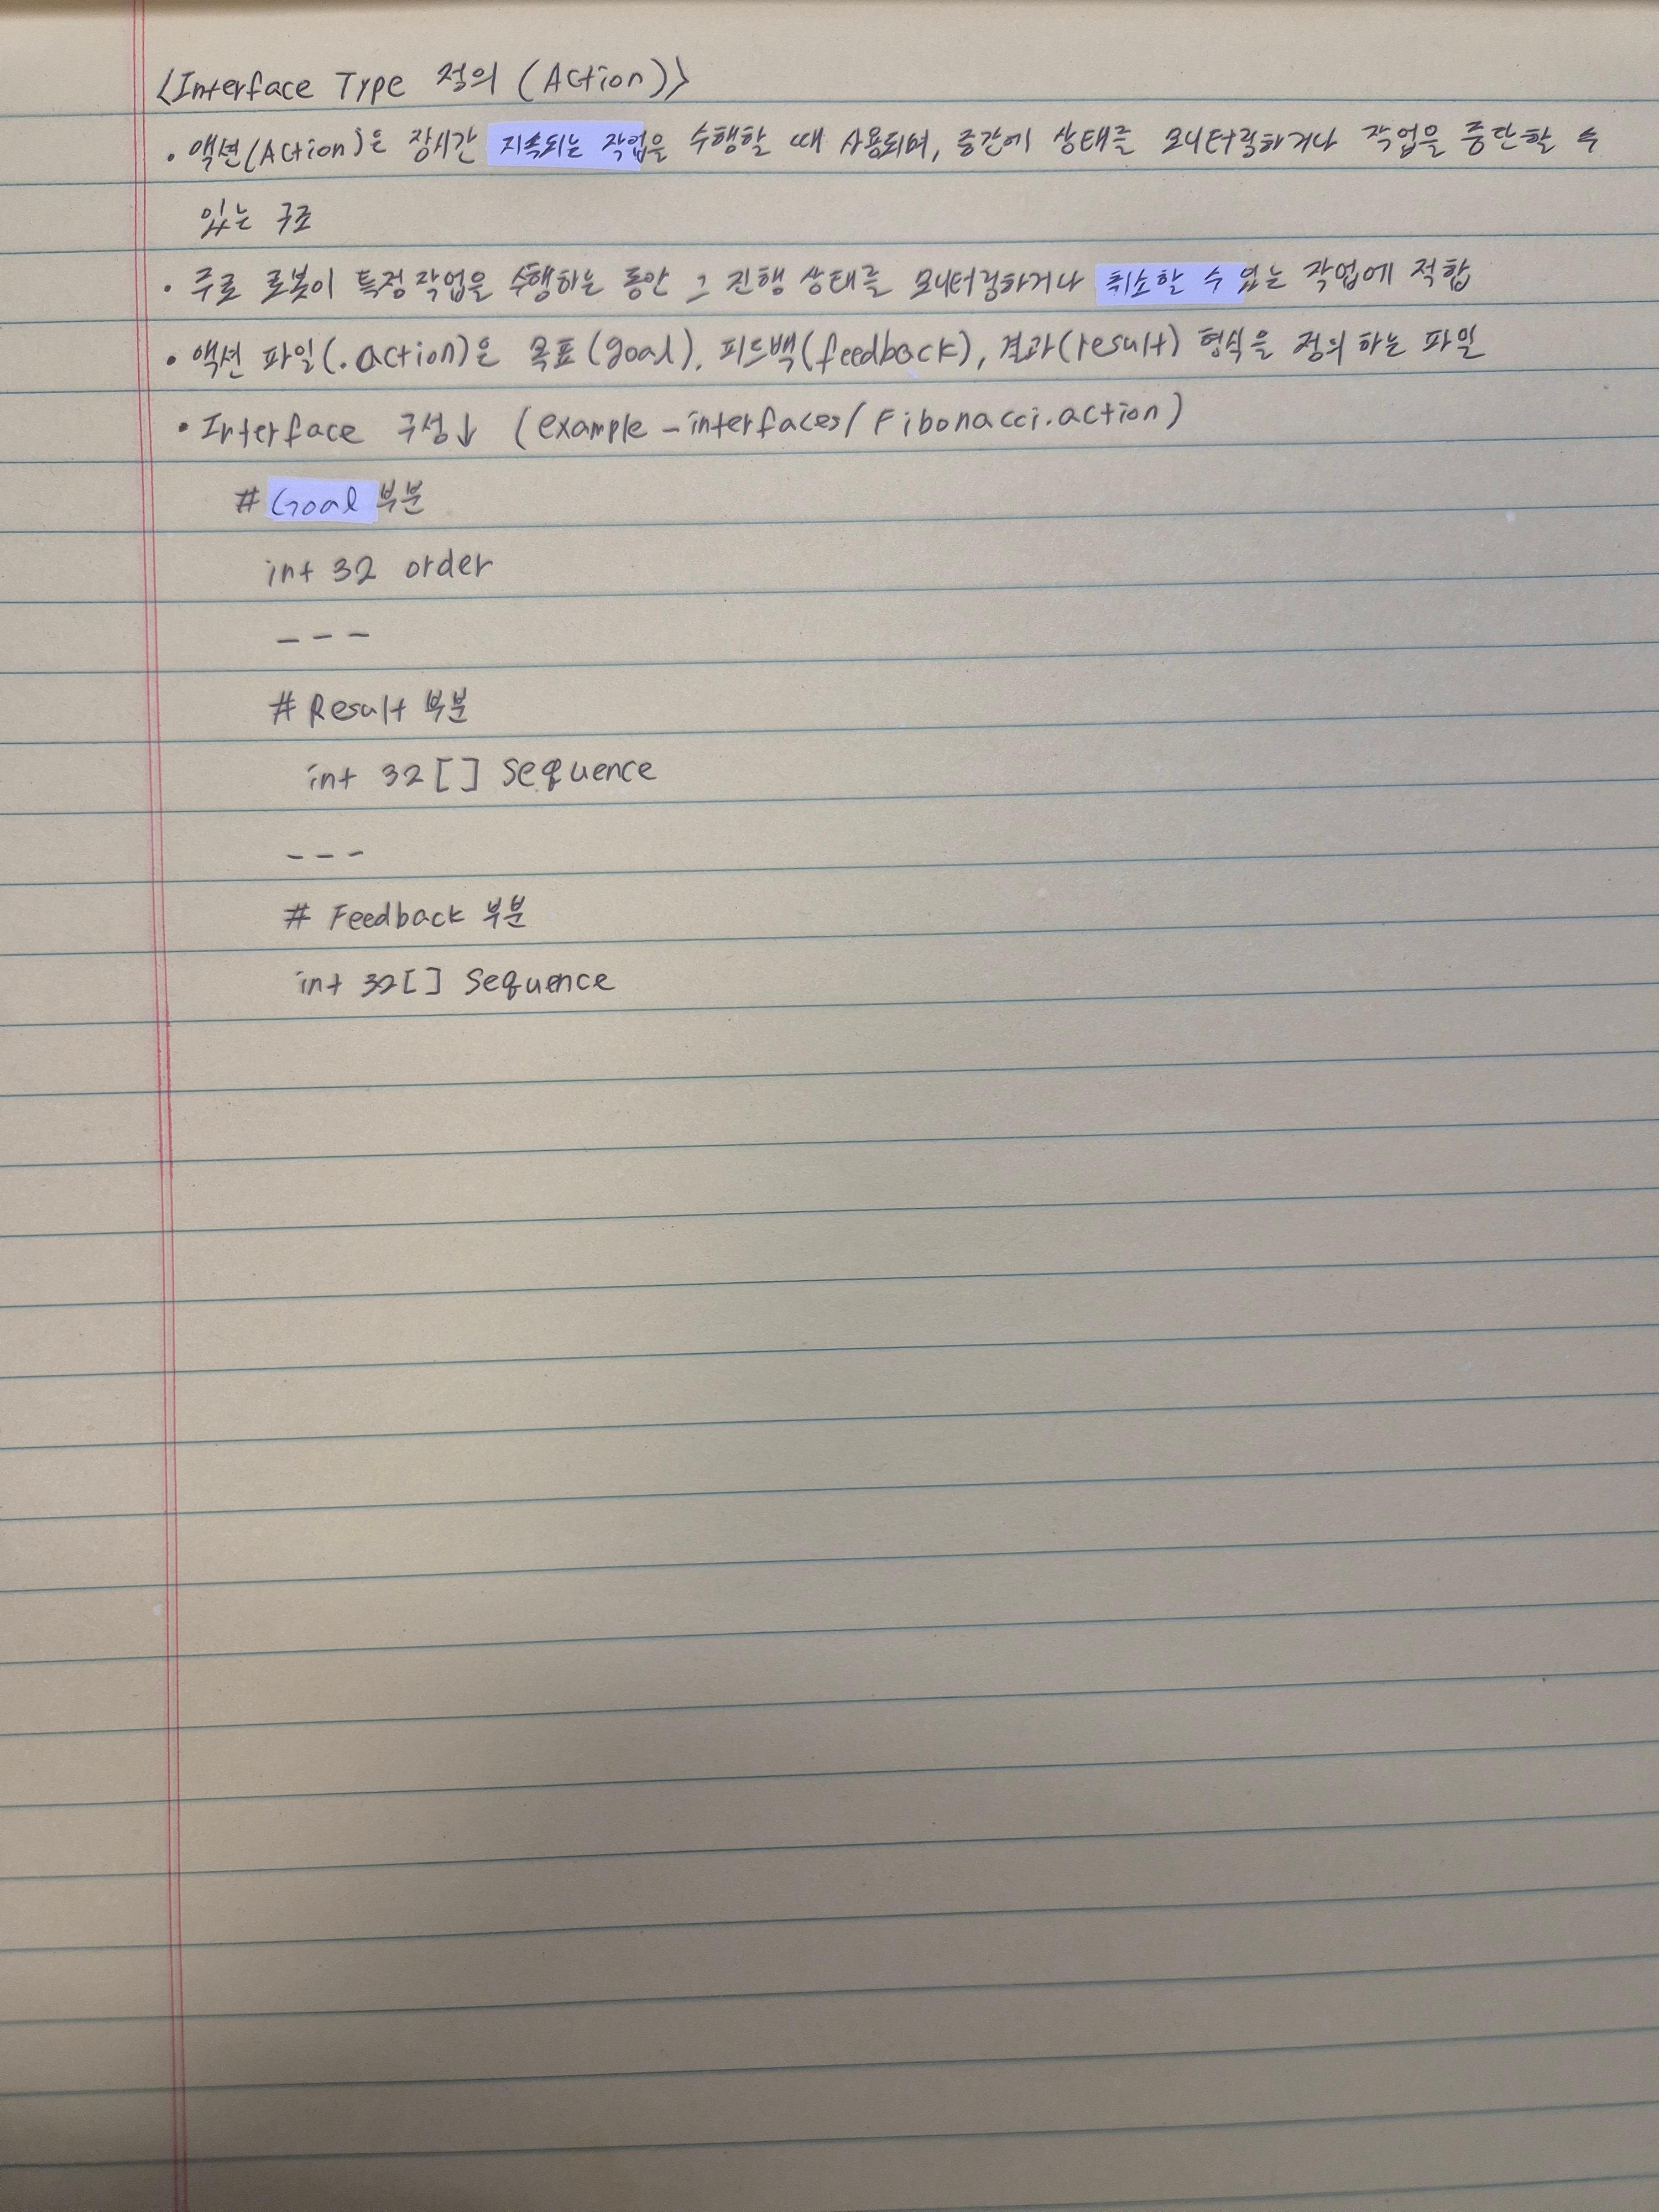 <Interface Type 정의 (Action)>
• 액션(Action)은 장시간 지속되는 작업을 수행할 때 사용되며, 중간에 상태를 모니터링하거나 작업을 중단할 수
있는 구조
• 주로 로봇이 특정 작업을 수행하는 동안 그 진행 상태를 모니터링하거나 취소할 수 있는 작업에 적합
• 액션 파일(.action)은 목표(goal), 피드백(feedback), 결과(result) 형식을 정의 하는 파일
• Interface 구성↓ (example_interfaces/Fibonacci.action)
# Goal 부분
int 32 order
---
# Result 부분
int 32[] sequence
---
# Feedback 부분
int 32[] sequence